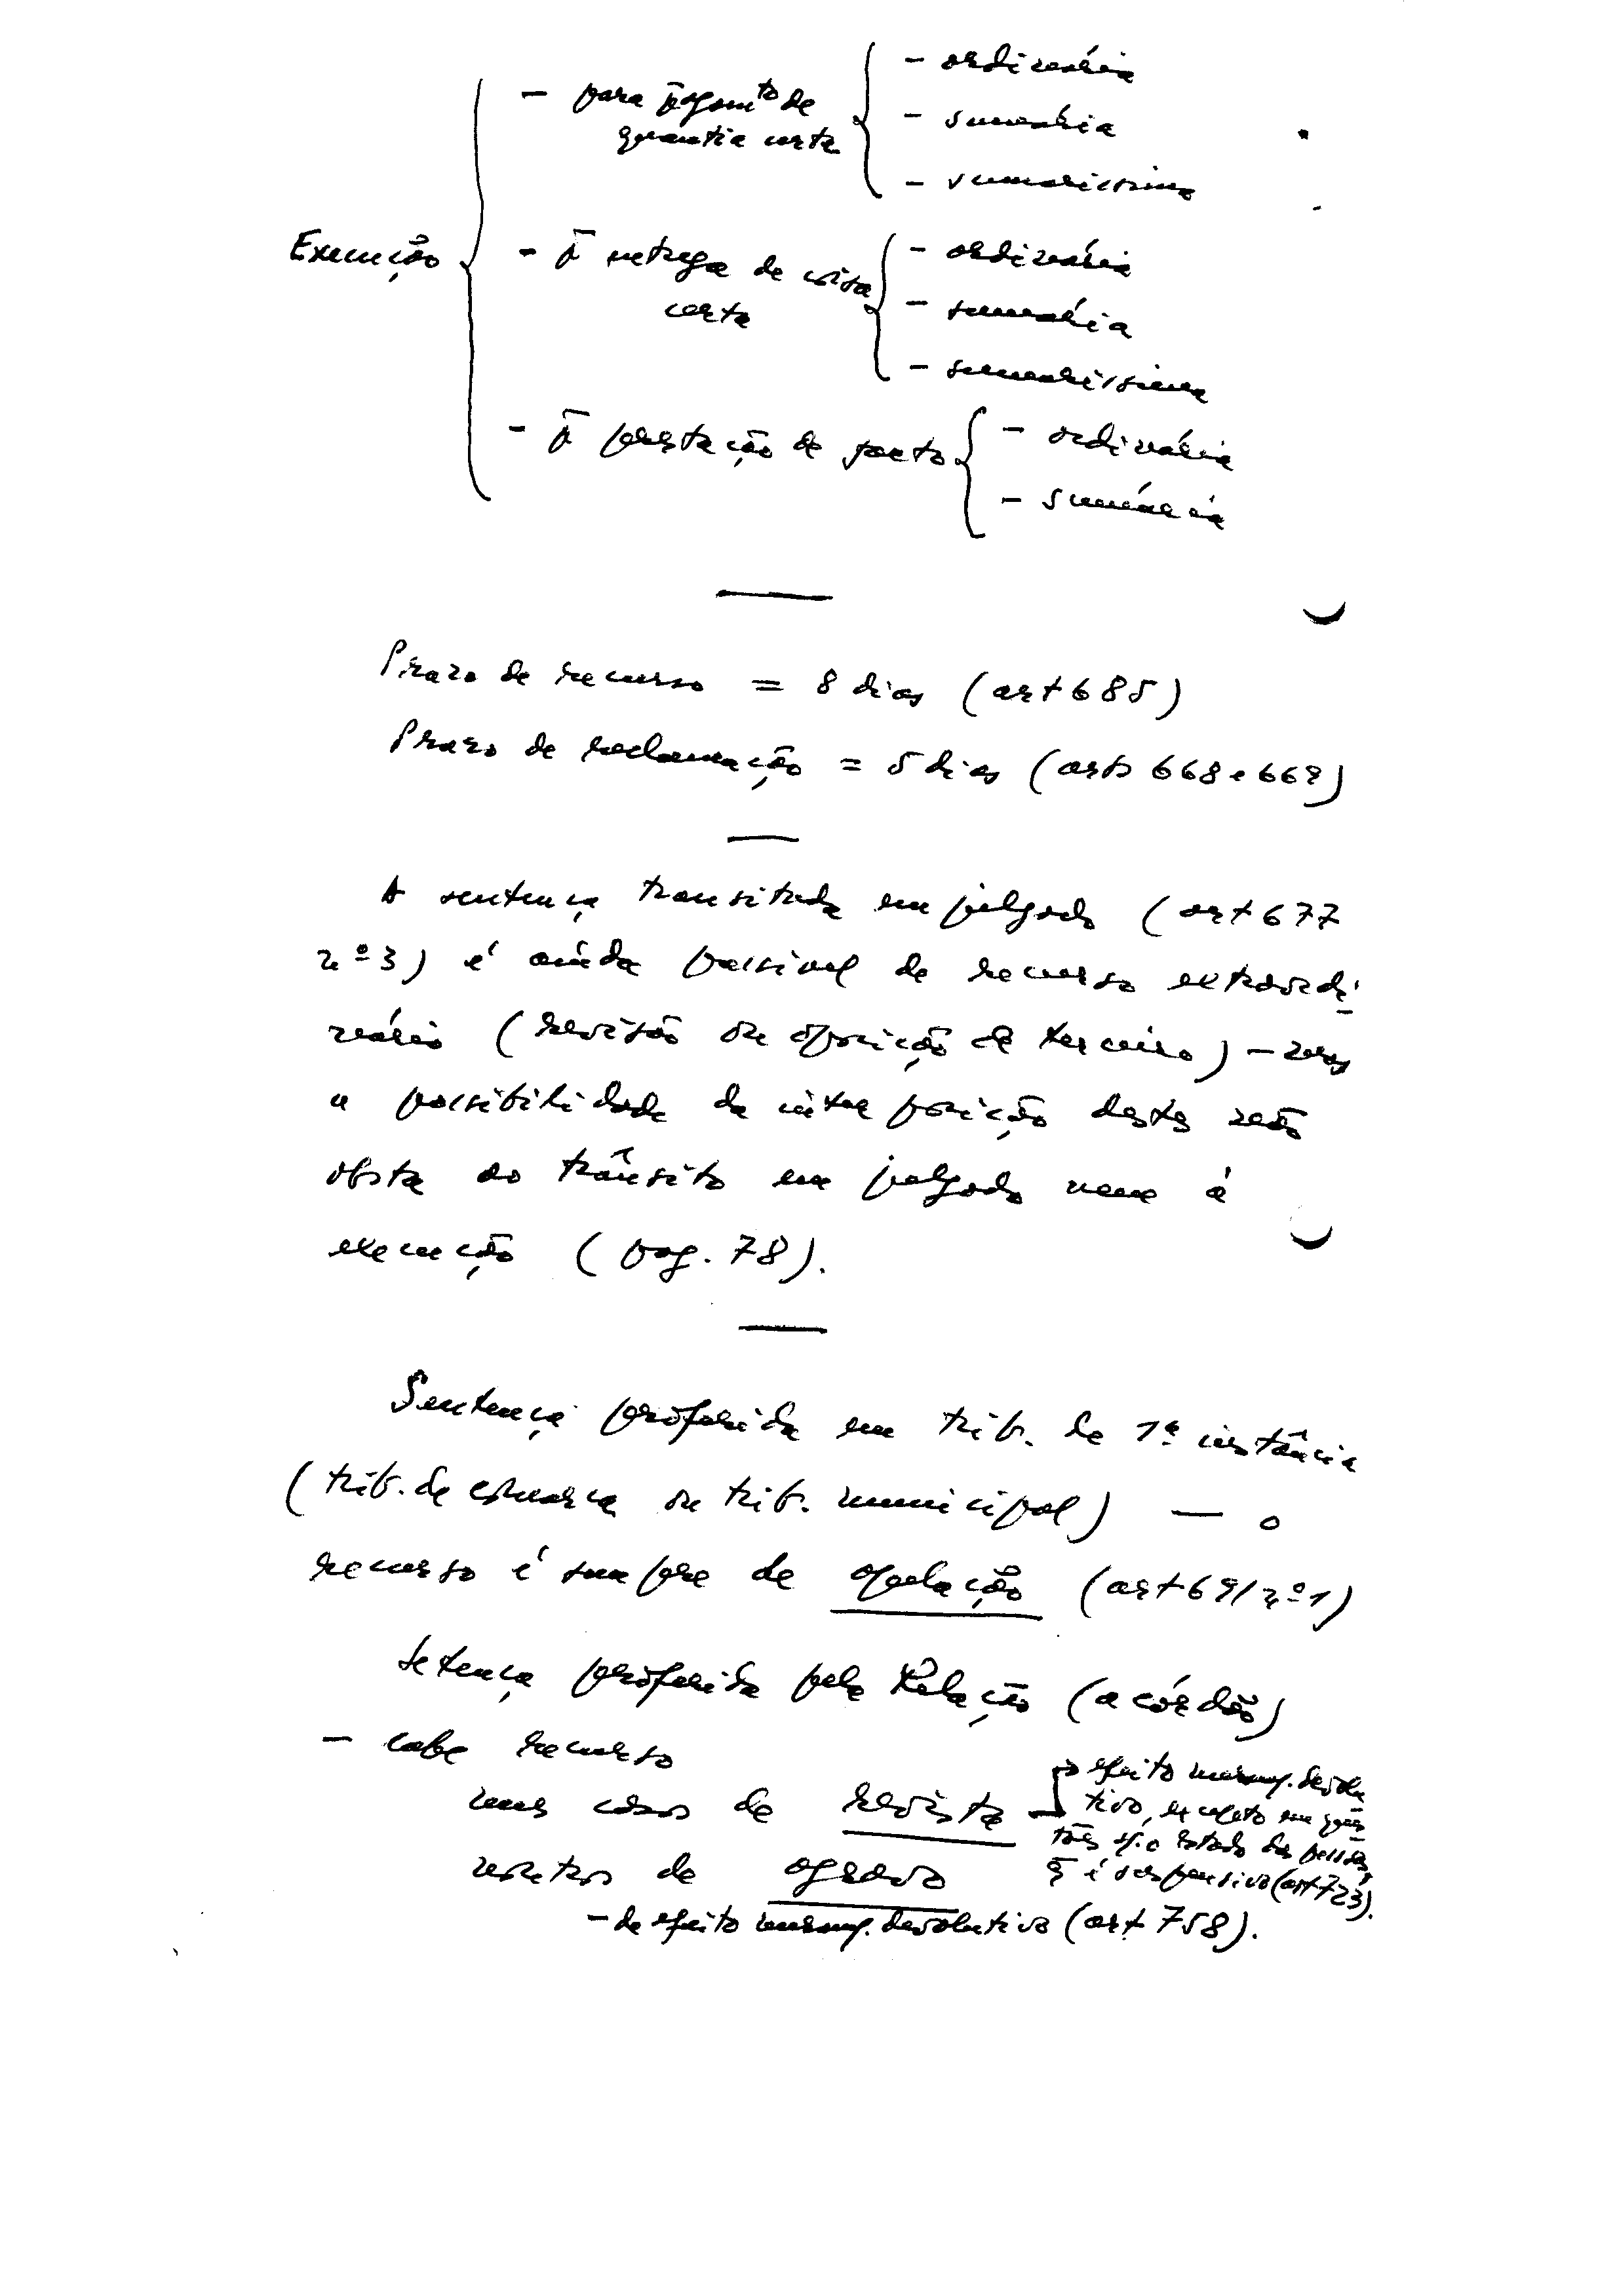 Execução
- para pagam^to de
quantia certa
- ordinária
- sumária
- sumaríssima
- p̄ entrega de coisa
certa
- ordinária
- sumária
- sumaríssima
- p̄ prestação de facto
- ordinária
- sumária
Prazo de recurso = 8 dias (art 685)
Prazo de reclamação = 5 dias (arts 668 e 669)
A sentença transitada em julgado (art 677
nº 3) é ainda passível de recurso extraordi-
nário (revisão ou oposição de terceiro) – mas
a possibilidade da interposição destes não
obsta ao trânsito em julgado nem à
execução (pag. 78).
Sentença proferida em trib. de 1ª instância
(trib. de comarca ou trib. municipal) — o
recurso é sempre de apelação (art 691 nº 1)
Setença proferida pela Relação (acórdão)
- cabe recurso
nuns casos de revista
efeito meramᵗ. devolu
tivo, excepto em ques
tões sf. o Estado das pessoas,
q̄ é suspensivo (art 723).
noutros de agravo
- de efeito meramᵗ. devolutivo (art 758).